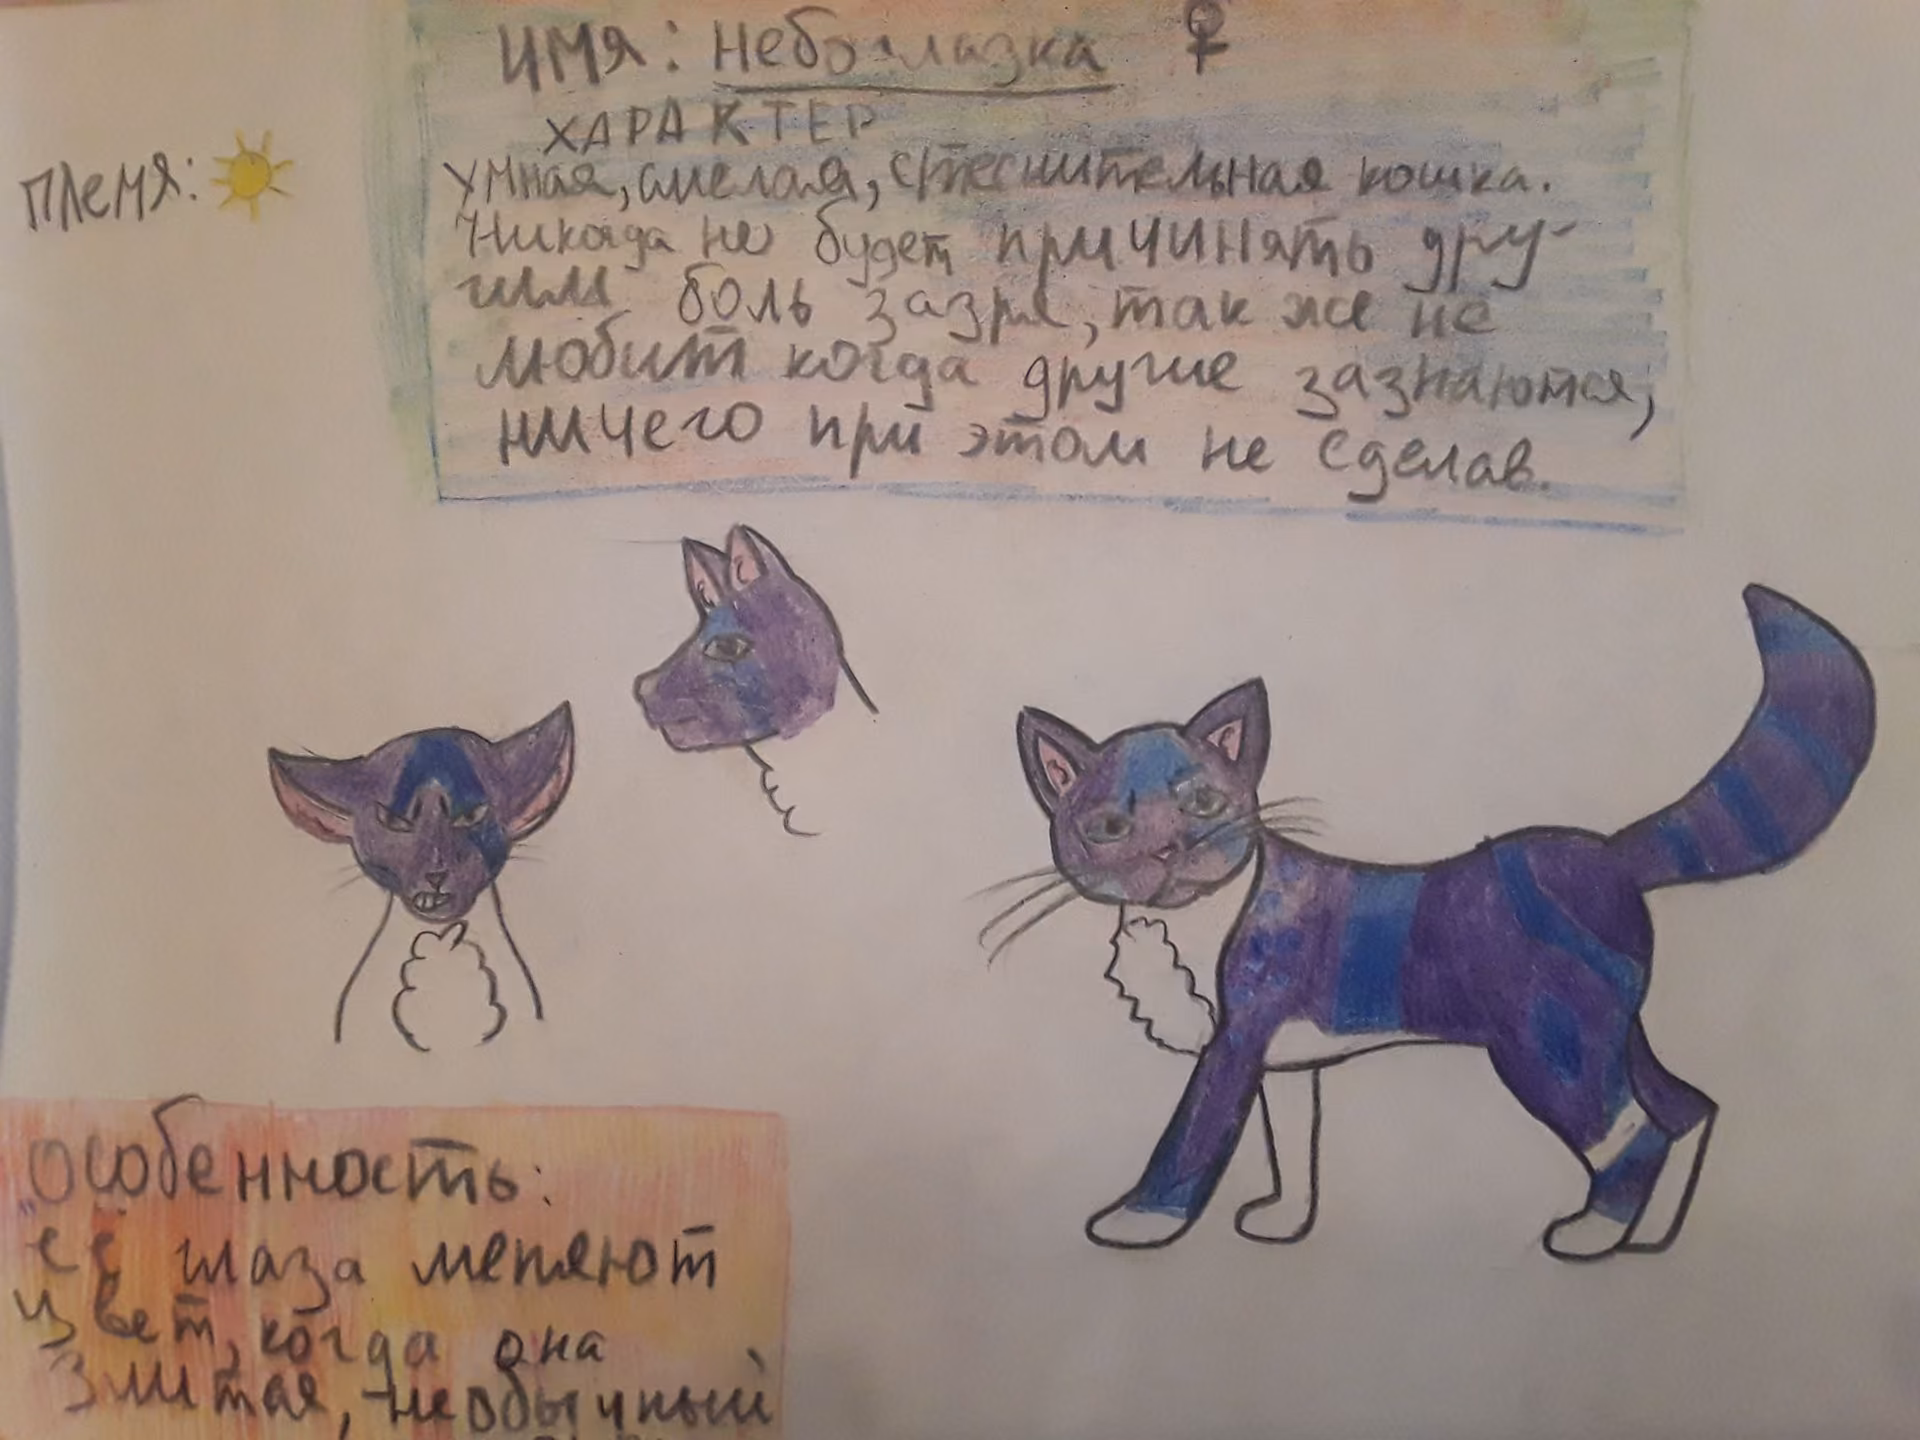 имя: Небоглазка ♀
ХАРАКТЕР
племя:
умная, смелая, стеснительная кошка.
Никогда не будет причинять дру-
гим боль зазря, так же не
любит когда другие зазнаются,
ничего при этом не сделав.
Особенность:
её глаза меняют
цвет, когда она
злитая, необычный